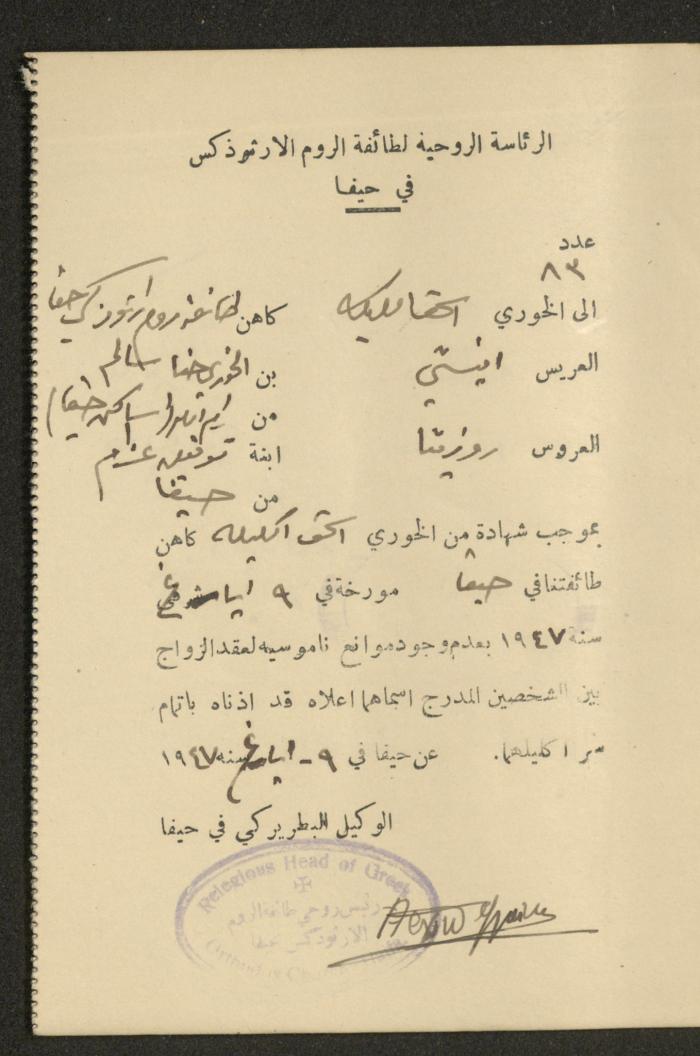 الرئاسة الروحية لطائفة الروم الارثوذكس
في حيفا
عدد
٨٣
الى الخوري كاهن لطائفة روم ارثوذكس حيفا
العريس بن الخوري حنا سالم
من (ساكن حيفا)
العروس ابنة توفيق عزام
من حيفا
بموجب شهادة من الخوري كاهن
طائفتنا في حيفا مورخة في ٩ ايار
سنة ١٩٤٧ بعدم وجود موانع ناموسيه لعقد الزواج
بين الشخصين المدرج اسماهما اعلاه قد اذناه باتمام
سر اكليلهما. عن حيفا في ٩ - ايار سنه ١٩٤٧
الوكيل البطريركي في حيفا
Relegious Head of Greek
رئيس روحي طائفة الروم
الارثوذكس بحيفا